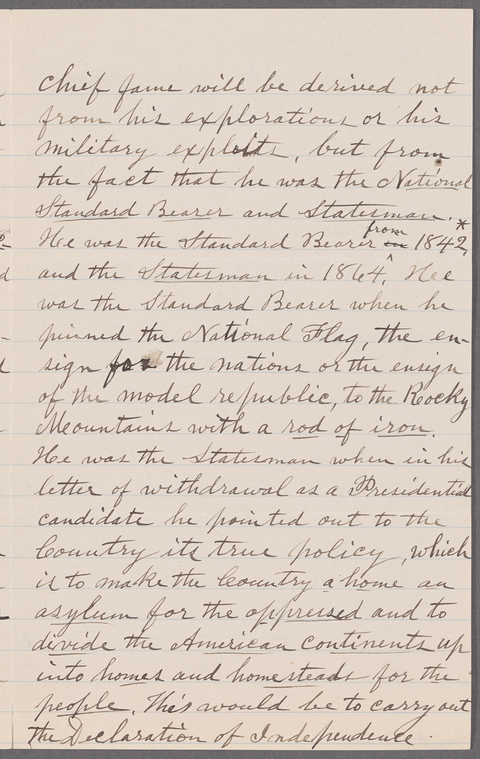 Chief fame will be derived not
from his explorations or his
military exploits, but from
the fact that he was the National
Standard Bearer and Statesman.
He was the Standard Bearer in from 1842,*
and the Statesman in 1864. He
was the Standard Bearer when he
pinned the National Flag, the en-
sign for the nations or the ensign
of the model republic, to the Rocky
Mountains with a rod of iron.
He was the Statesman when in his
letter of withdrawal as a Presidential
candidate he pointed out to the
Country its true policy, which
is to make the Country a home an
asylum for the oppressed and to
divide the American continents up
into homes and homesteads for the
people. This would be to carry out
the Declaration of Independence.